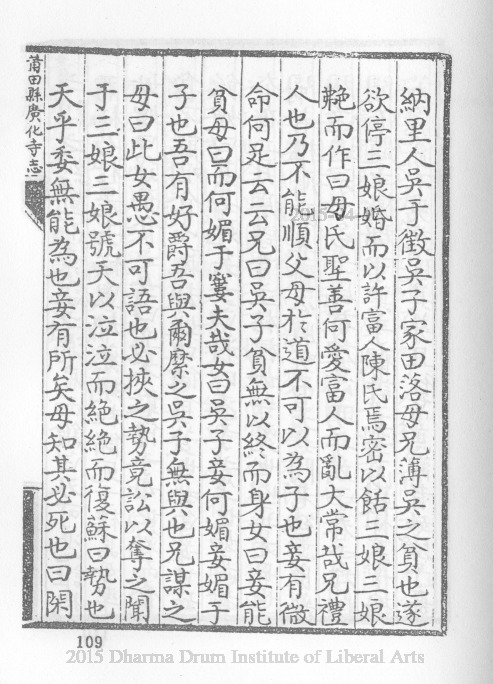 納里人吳于徵吳子冢田洛母兄薄吳之貧也遂
欲停三娘婚而以許富人陳氏焉密以餂三娘三娘
艴而作曰母氏聖善何愛富人而亂大常哉兄禮
人也乃不能順父母於道不可以為子也妾有微
命何足云云兄曰吳子貧無以終而身女曰妾能
貧母曰而何媚于窶夫哉女曰吳子妾何媚妾媚于
子也吾有好爵吾與爾縻之吳子無與也兄謀之
母曰此女愚不可語也必挾之勢竟訟以奪之聞
于三娘三娘號天以泣泣而絕絕而復蘇曰勢也
天乎委無能為也妾有所矣母知其必死也曰閑
莆田縣廣化寺志
109
2015 Dharma Drum Institute of Liberal Arts